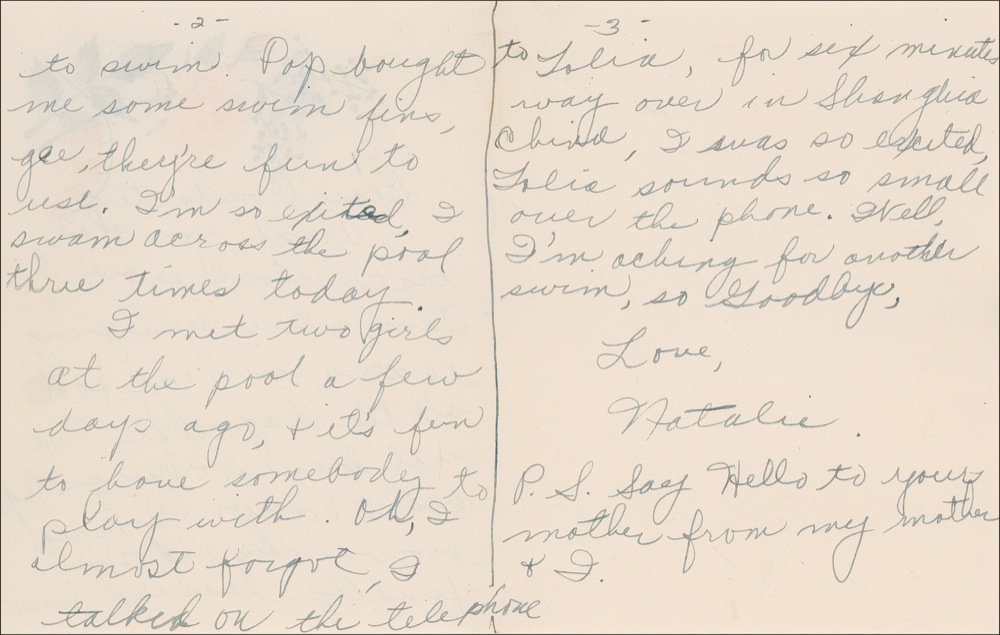 - 2 -
to swim. Pop bought
me some swim fins,
gee, they're fun to
use. I'm so exited, I
swam across the pool
three times today.
I met two girls
at the pool a few
days ago, & it's fun
to have somebody to
play with. Oh, I
almost forgot, I
talked on the telephone
- 3 -
to Lolia, for six minutes
way over in Shanghia
China, I was so excited,
Lolia sounds so small
over the phone. Well,
I'm aching for another
swim, so Goodbye,
Love,
Natalie.
P. S. Say Hello to your
mother from my mother
& I.